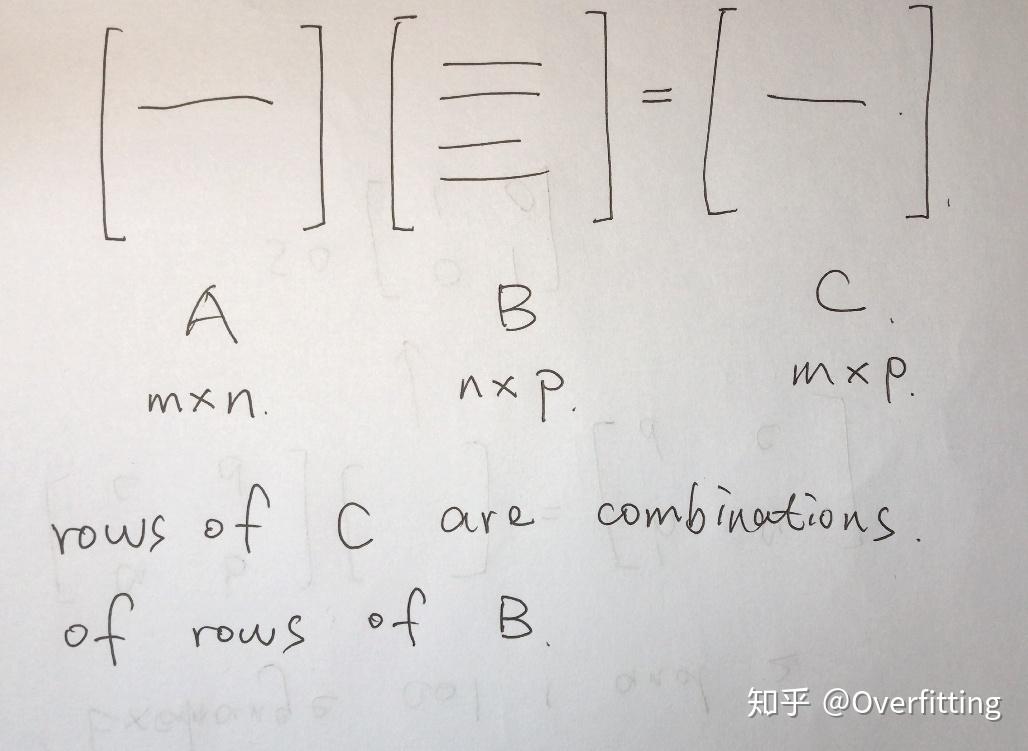 =
A B C.
m×n. n×p. m×p.
rows of C are combinations.
of rows of B.
知乎 @Overfitting